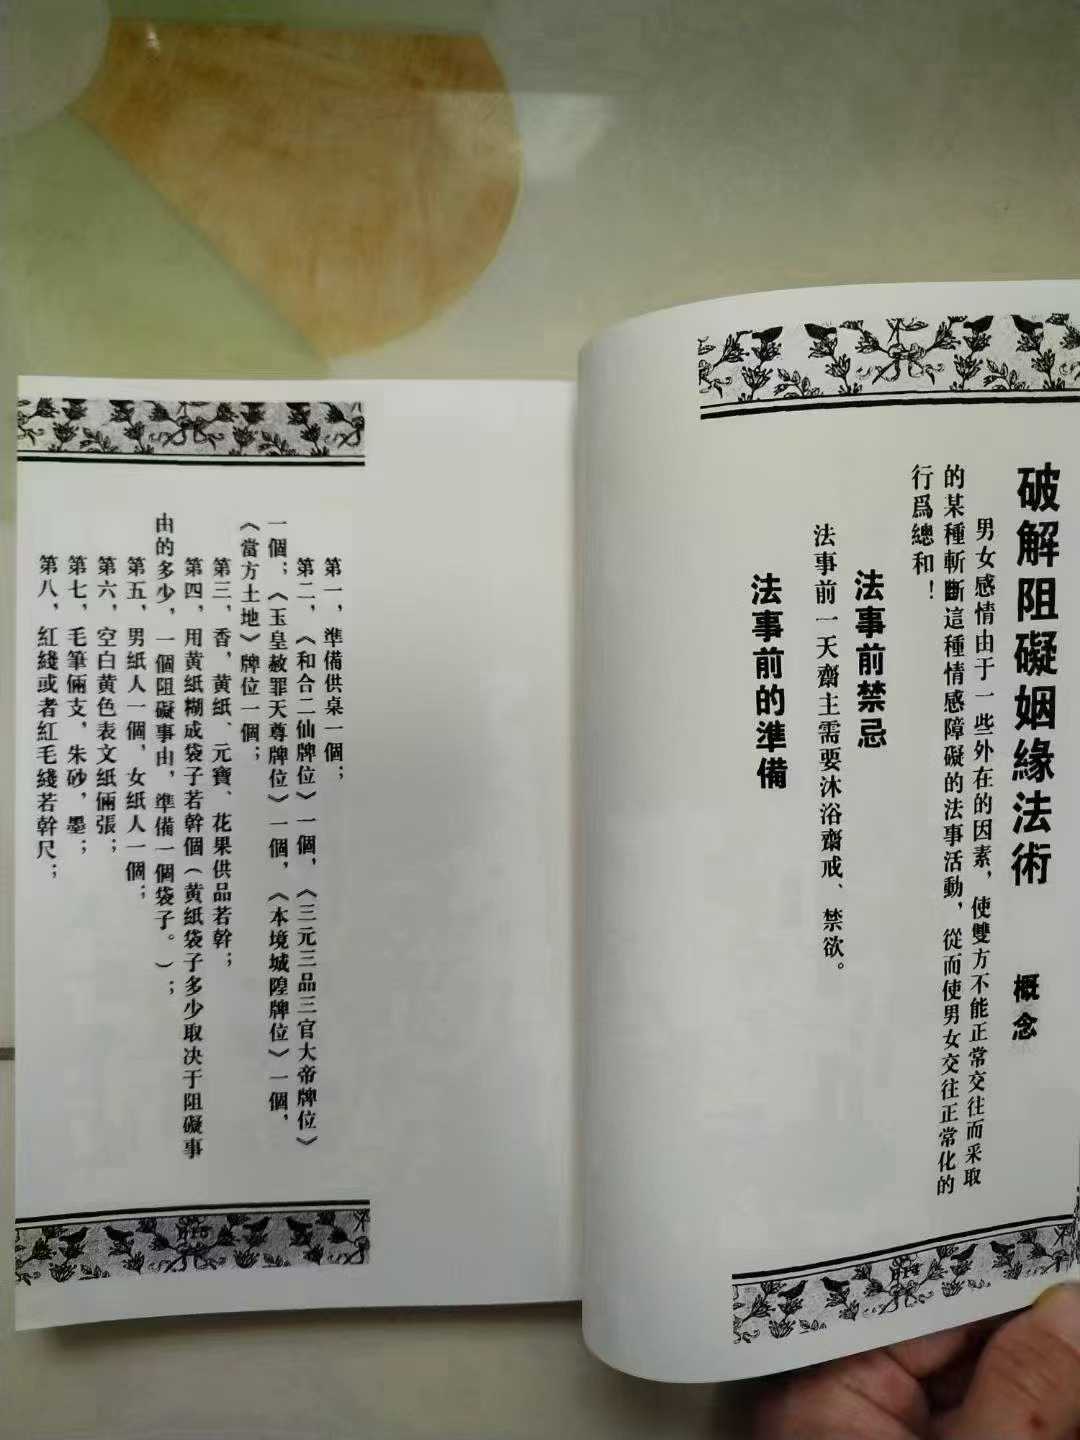 破解阻礙姻緣法術
概念
男女感情由于一些外在的因素，使雙方不能正常交往而采取
的某種斬斷這種情感障礙的法事活動，從而使男女交往正常化的
行爲總和！
法事前禁忌
法事前一天齋主需要沐浴齋戒、禁欲。
法事前的準備
第一，準備供桌一個；
第二，《和合二仙牌位》一個，《三元三品三官大帝牌位》
一個；《玉皇赦罪天尊牌位》一個，《本境城隍牌位》一個，
《當方土地》牌位一個；
第三，香，黄紙、元寶、花果供品若幹；
第四，用黄紙糊成袋子若幹個（黄紙袋子多少取决于阻礙事
由的多少，一個阻礙事由，準備一個袋子。）；
第五，男紙人一個，女紙人一個；
第六，空白黄色表文紙倆張；
第七，毛筆倆支，朱砂，墨；
第八，紅綫或者紅毛綫若幹尺；